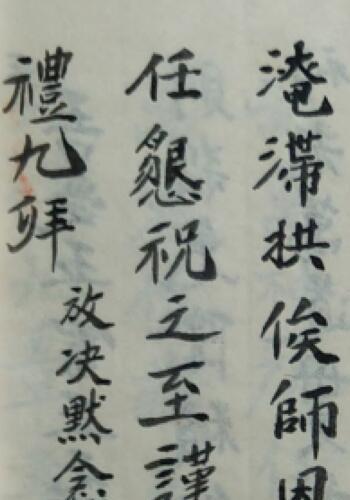 淹滯拱俟師恩
任懇祝之至謹
禮九拜
放决默念